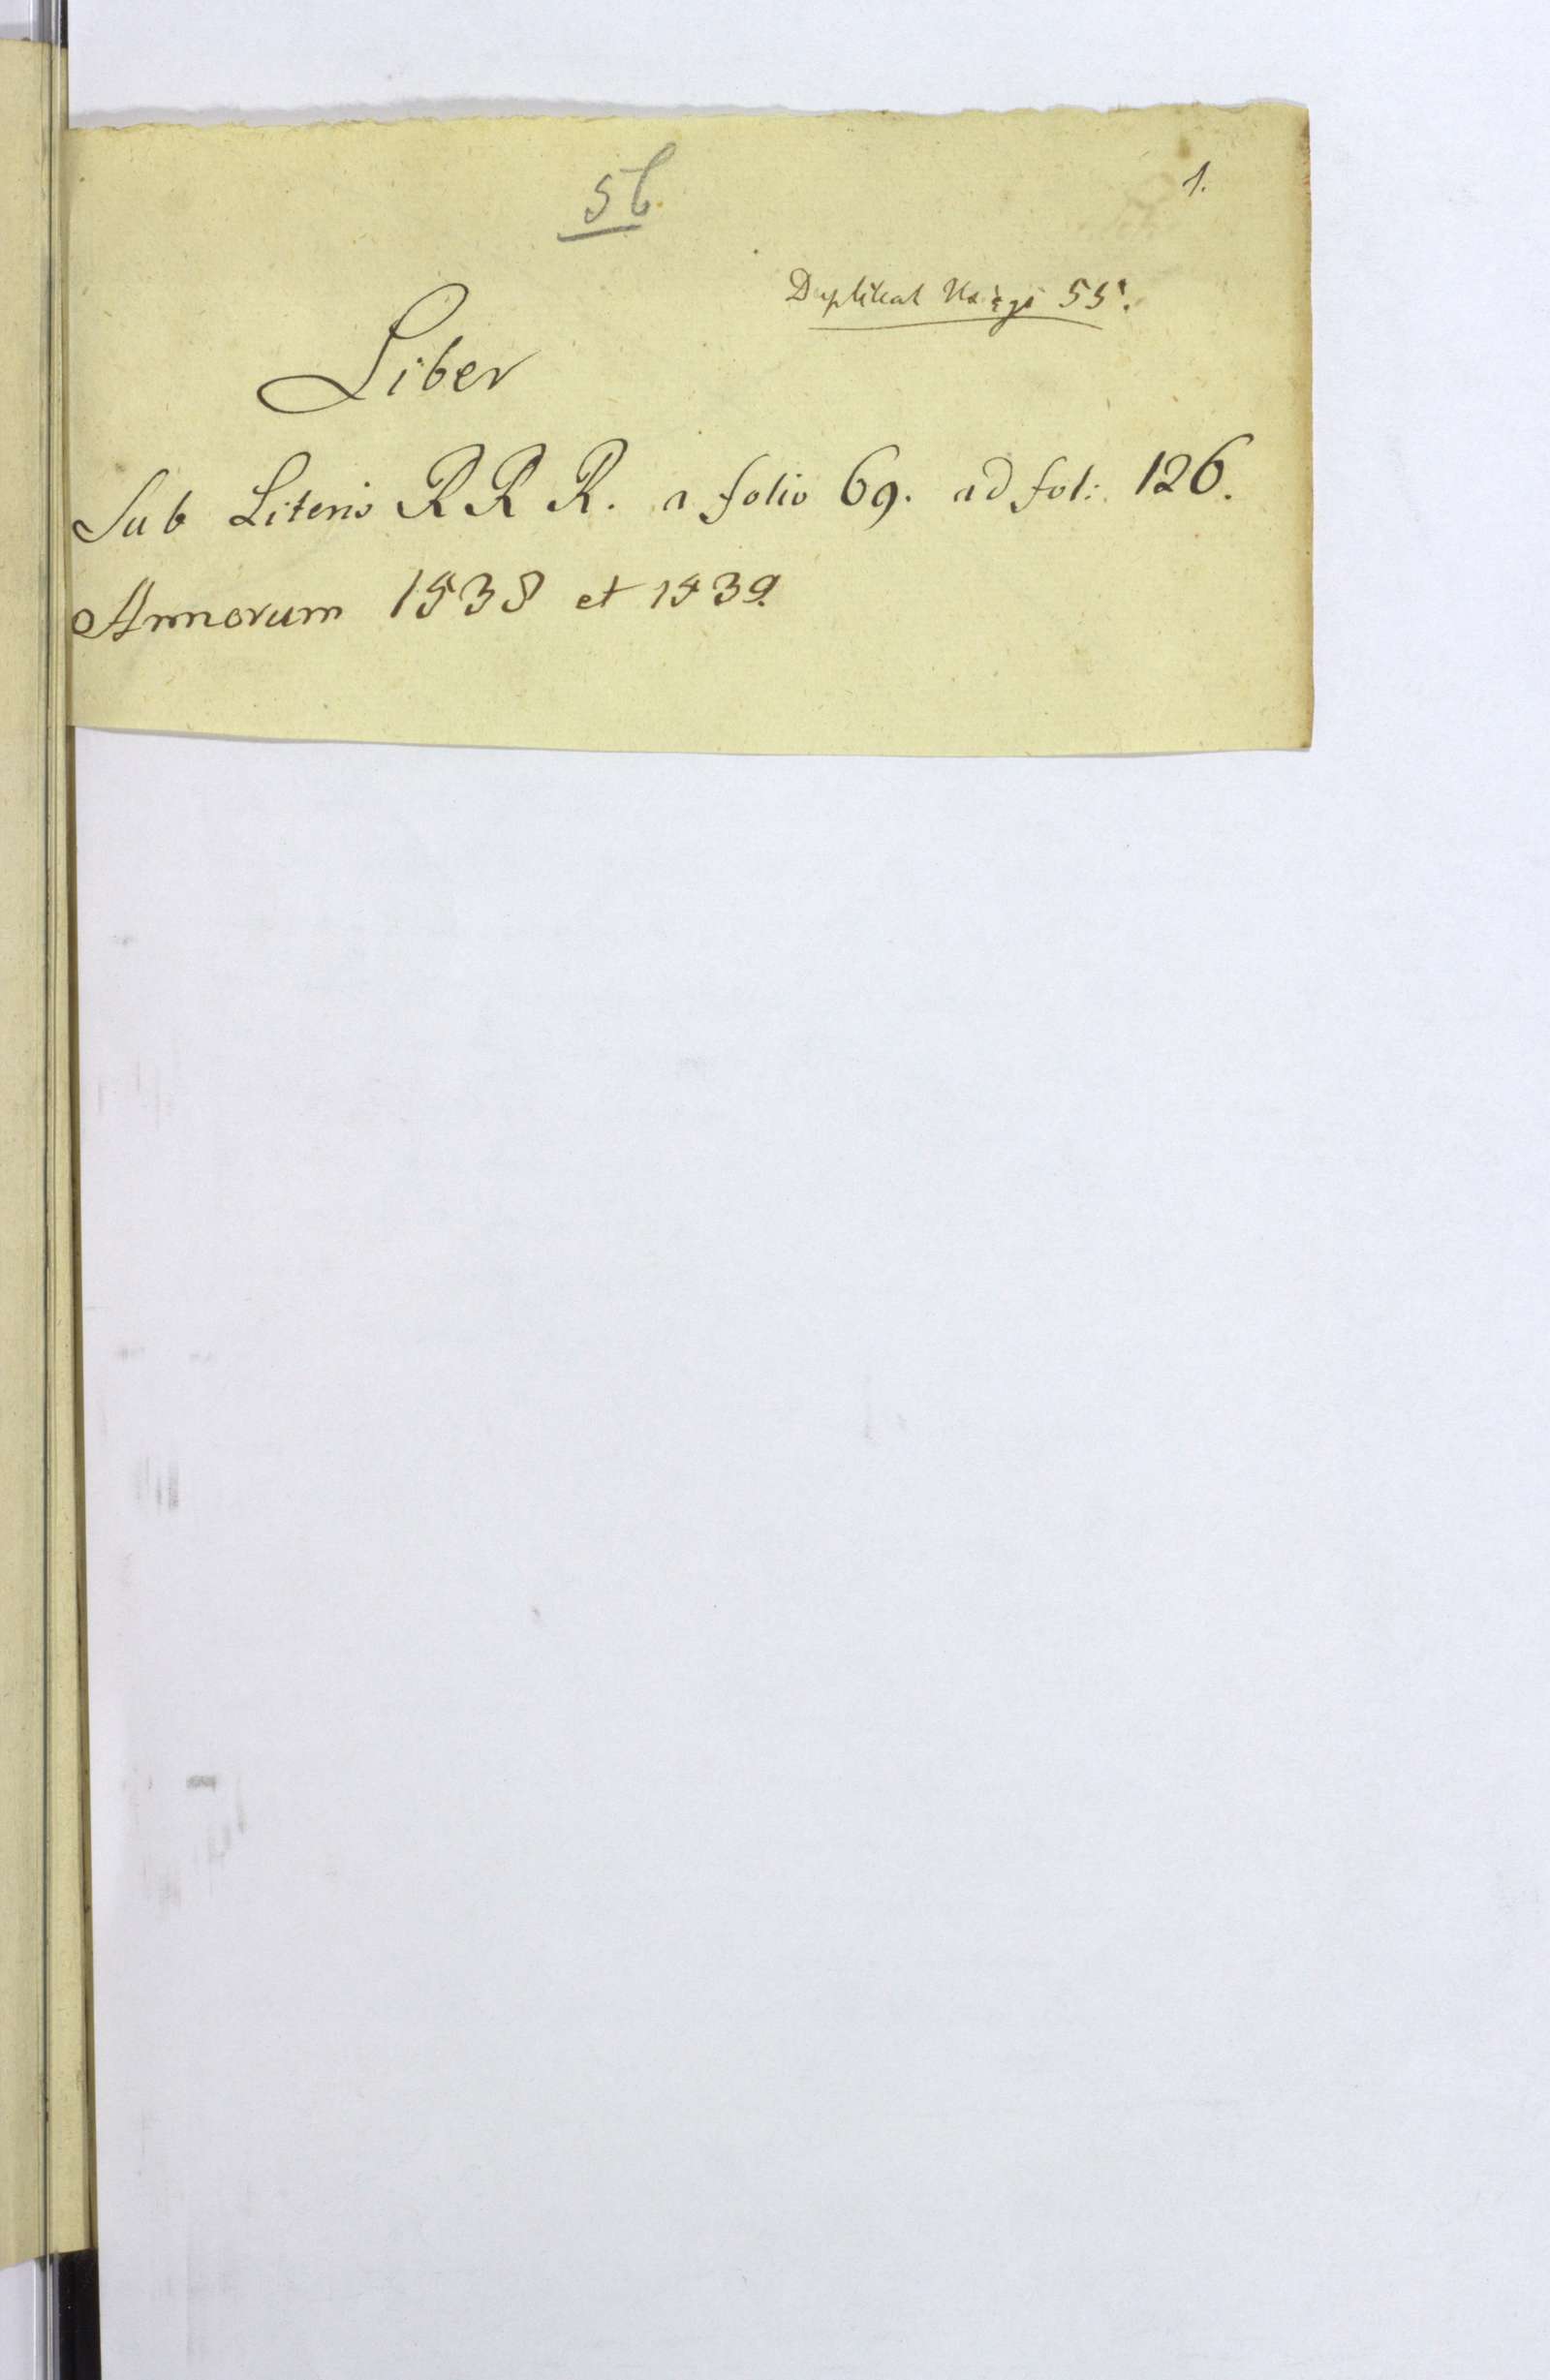 56
1.
Duplikat Księgi 55.
Liber
Sub Literis R R R. a folio 69. ad fol: 126.
Annorum 1538 et 1539.